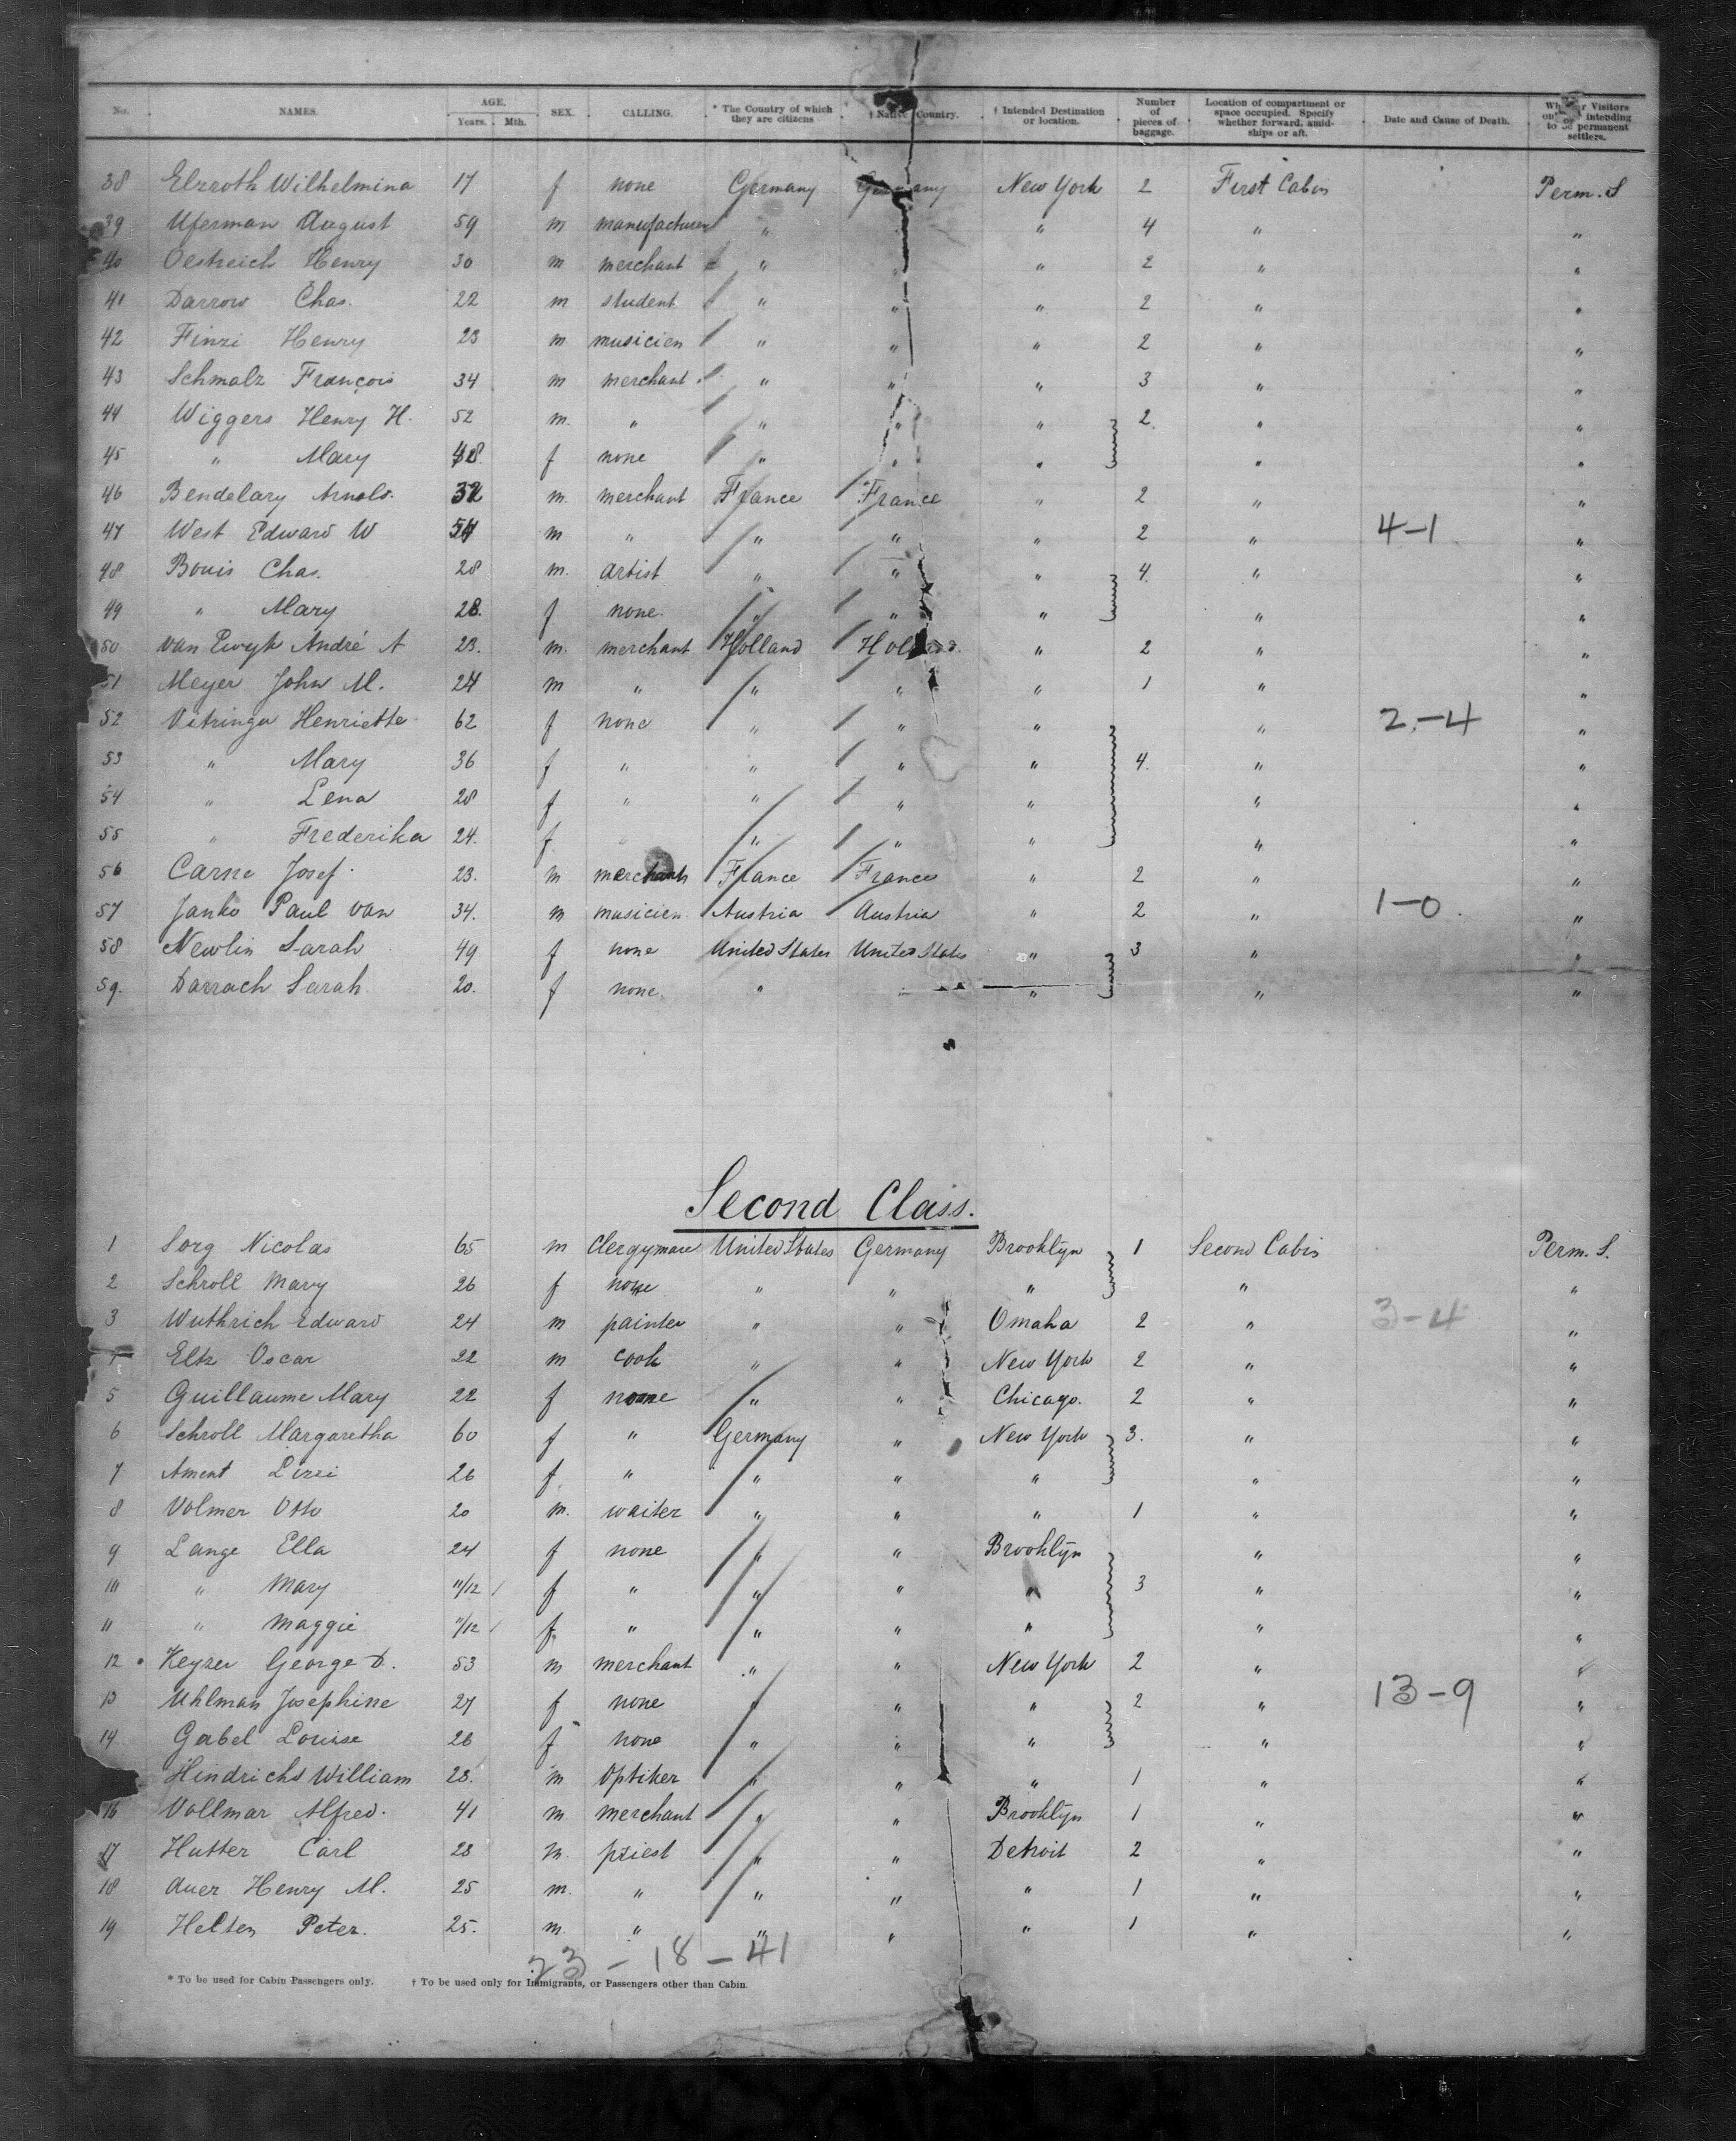 No. NAMES. AGE. Years. Mth. SEX. CALLING. * The Country of which they are citizens † Native Country. † Intended Destination or location. Number of pieces of baggage. Location of compartment or space occupied. Specify whether forward, amidships or aft. Date and Cause of Death. Visitors intending to permanent settlers.
38 Elzroth Wilhelmina 17 f none Germany Germany New York 2 First Cabin Perm. S
39 Uferman August 59 m manufacturer " " 4 " "
40 Oestreich Henry 30 m merchant " " " 2 " "
41 Darrow Chas. 22 m student " " " 2 " "
42 Finzi Henry 23 m musicien " " " 2 " "
43 Schmalz François 34 m merchant " " " 3 " "
44 Wiggers Henry H. 52 m. " " " " 2. " "
45 " Mary 48 f none " " " " "
46 Bendelary Arnold. 32 m. merchant France France " 2 " "
47 West Edward W 54 m " " " " 2 " 4-1 "
48 Bouis Chas. 28 m. artist " " " 4. " "
49 " Mary 28. f none. " " " " "
50 van Ewyk André A 23. m. merchant Holland Holland " 2 " "
51 Meyer John M. 24 m " " " " 1 " "
52 Vitringa Henriette 62 f none " " " " 2-4 "
53 " Mary 36 f " " " " 4. " "
54 " Lena 28 f " " " " " "
55 " Frederika 24. f. " " " " " "
56 Carne Josef. 23. m merchant France France " 2 " "
57 Janko Paul van 34. m musicien Austria Austria " 2 " 1-0. "
58 Newlin Sarah 49 f none United States United States " 3 " "
59. Darrach Sarah 20. f none. " " " " "
Second Class.
1 Sorg Nicolas 65 m Clergyman United States Germany Brooklyn 1 Second Cabin Perm. S.
2 Schroll Mary 26 f none " " " " "
3 Wuthrich Edward 24 m painter " " Omaha 2 " 3-4 "
Eltz Oscar 22 m cook " " New York 2 " "
5 Guillaume Mary 22 f none " " Chicago. 2 " "
6 Schroll Margaretha 60 f " Germany " New York 3. " "
7 Ament Lizzi 26 f. " " " " " "
8 Volmer Otto 20 m. waiter " " " 1 " "
9 Lange Ella 24 f none " " Brooklyn " "
10 " Mary 11/12 f " " " " 3 " "
11 " Maggie 11/12 f. " " " " " "
12 Keyzer George D. 53 m merchant " " New York 2 " "
13 Uhlman Josephine 27 f none " " " 2 " 13-9 "
14 Gabel Louise 26 f none " " " " "
Hindrichs William 23. m Optiker " " " 1 " "
16 Vollmar Alfred. 41 m. merchant " " Brooklyn 1 " "
17 Hutter Carl 23 m. priest " " Detroit 2 " "
18 Auer Henry M. 25 m. " " " " 1 " "
19 Helten Peter. 25. m. " " " " 1 " "
23 - 18 - 41
* To be used for Cabin Passengers only. † To be used only for Immigrants, or Passengers other than Cabin.